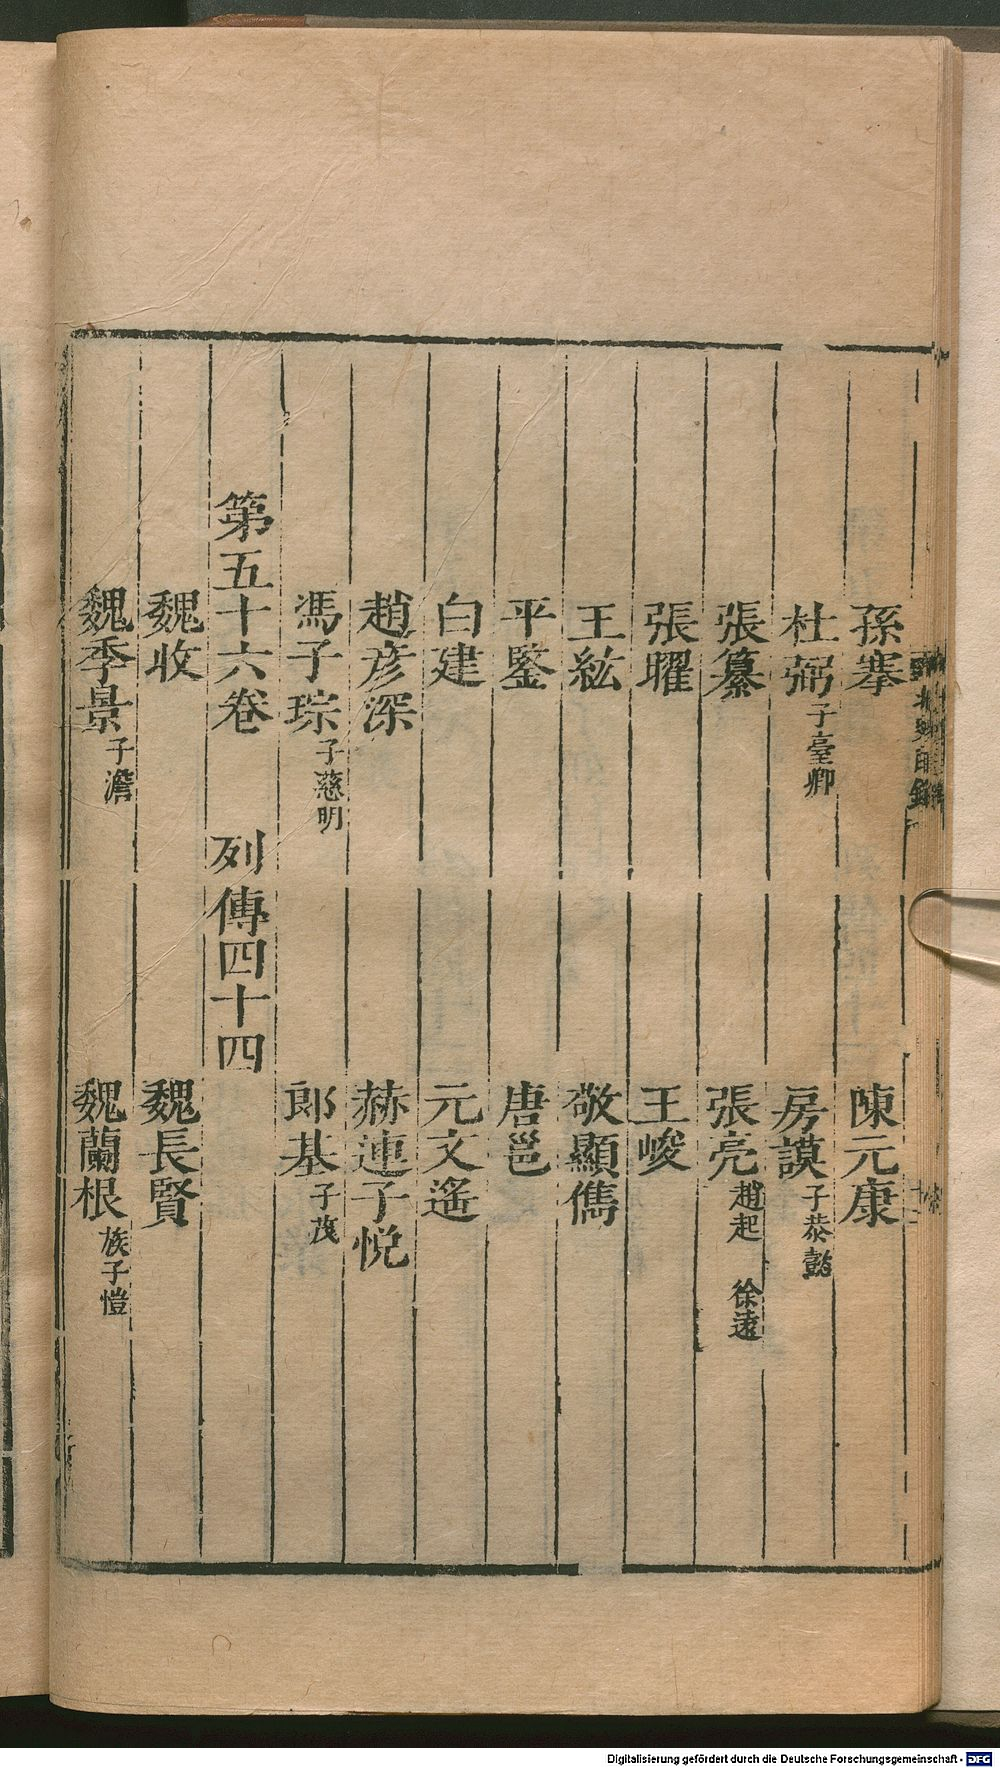 孫搴 陳元康
杜弼子臺卿 房謨子恭懿
張纂 張亮趙起 徐遠
張曜 王峻
王紘 敬顯儁
平鑒 唐邕
白建 元文遙
趙彦深 赫連子悦
馮子琮子慈明 郎基子茂
第五十六卷 列傳四十四
魏收 魏長賢
魏季景子澹 魏蘭根族子愷
Digitalisierung gefördert durch die Deutsche Forschungsgemeinschaft - DFG